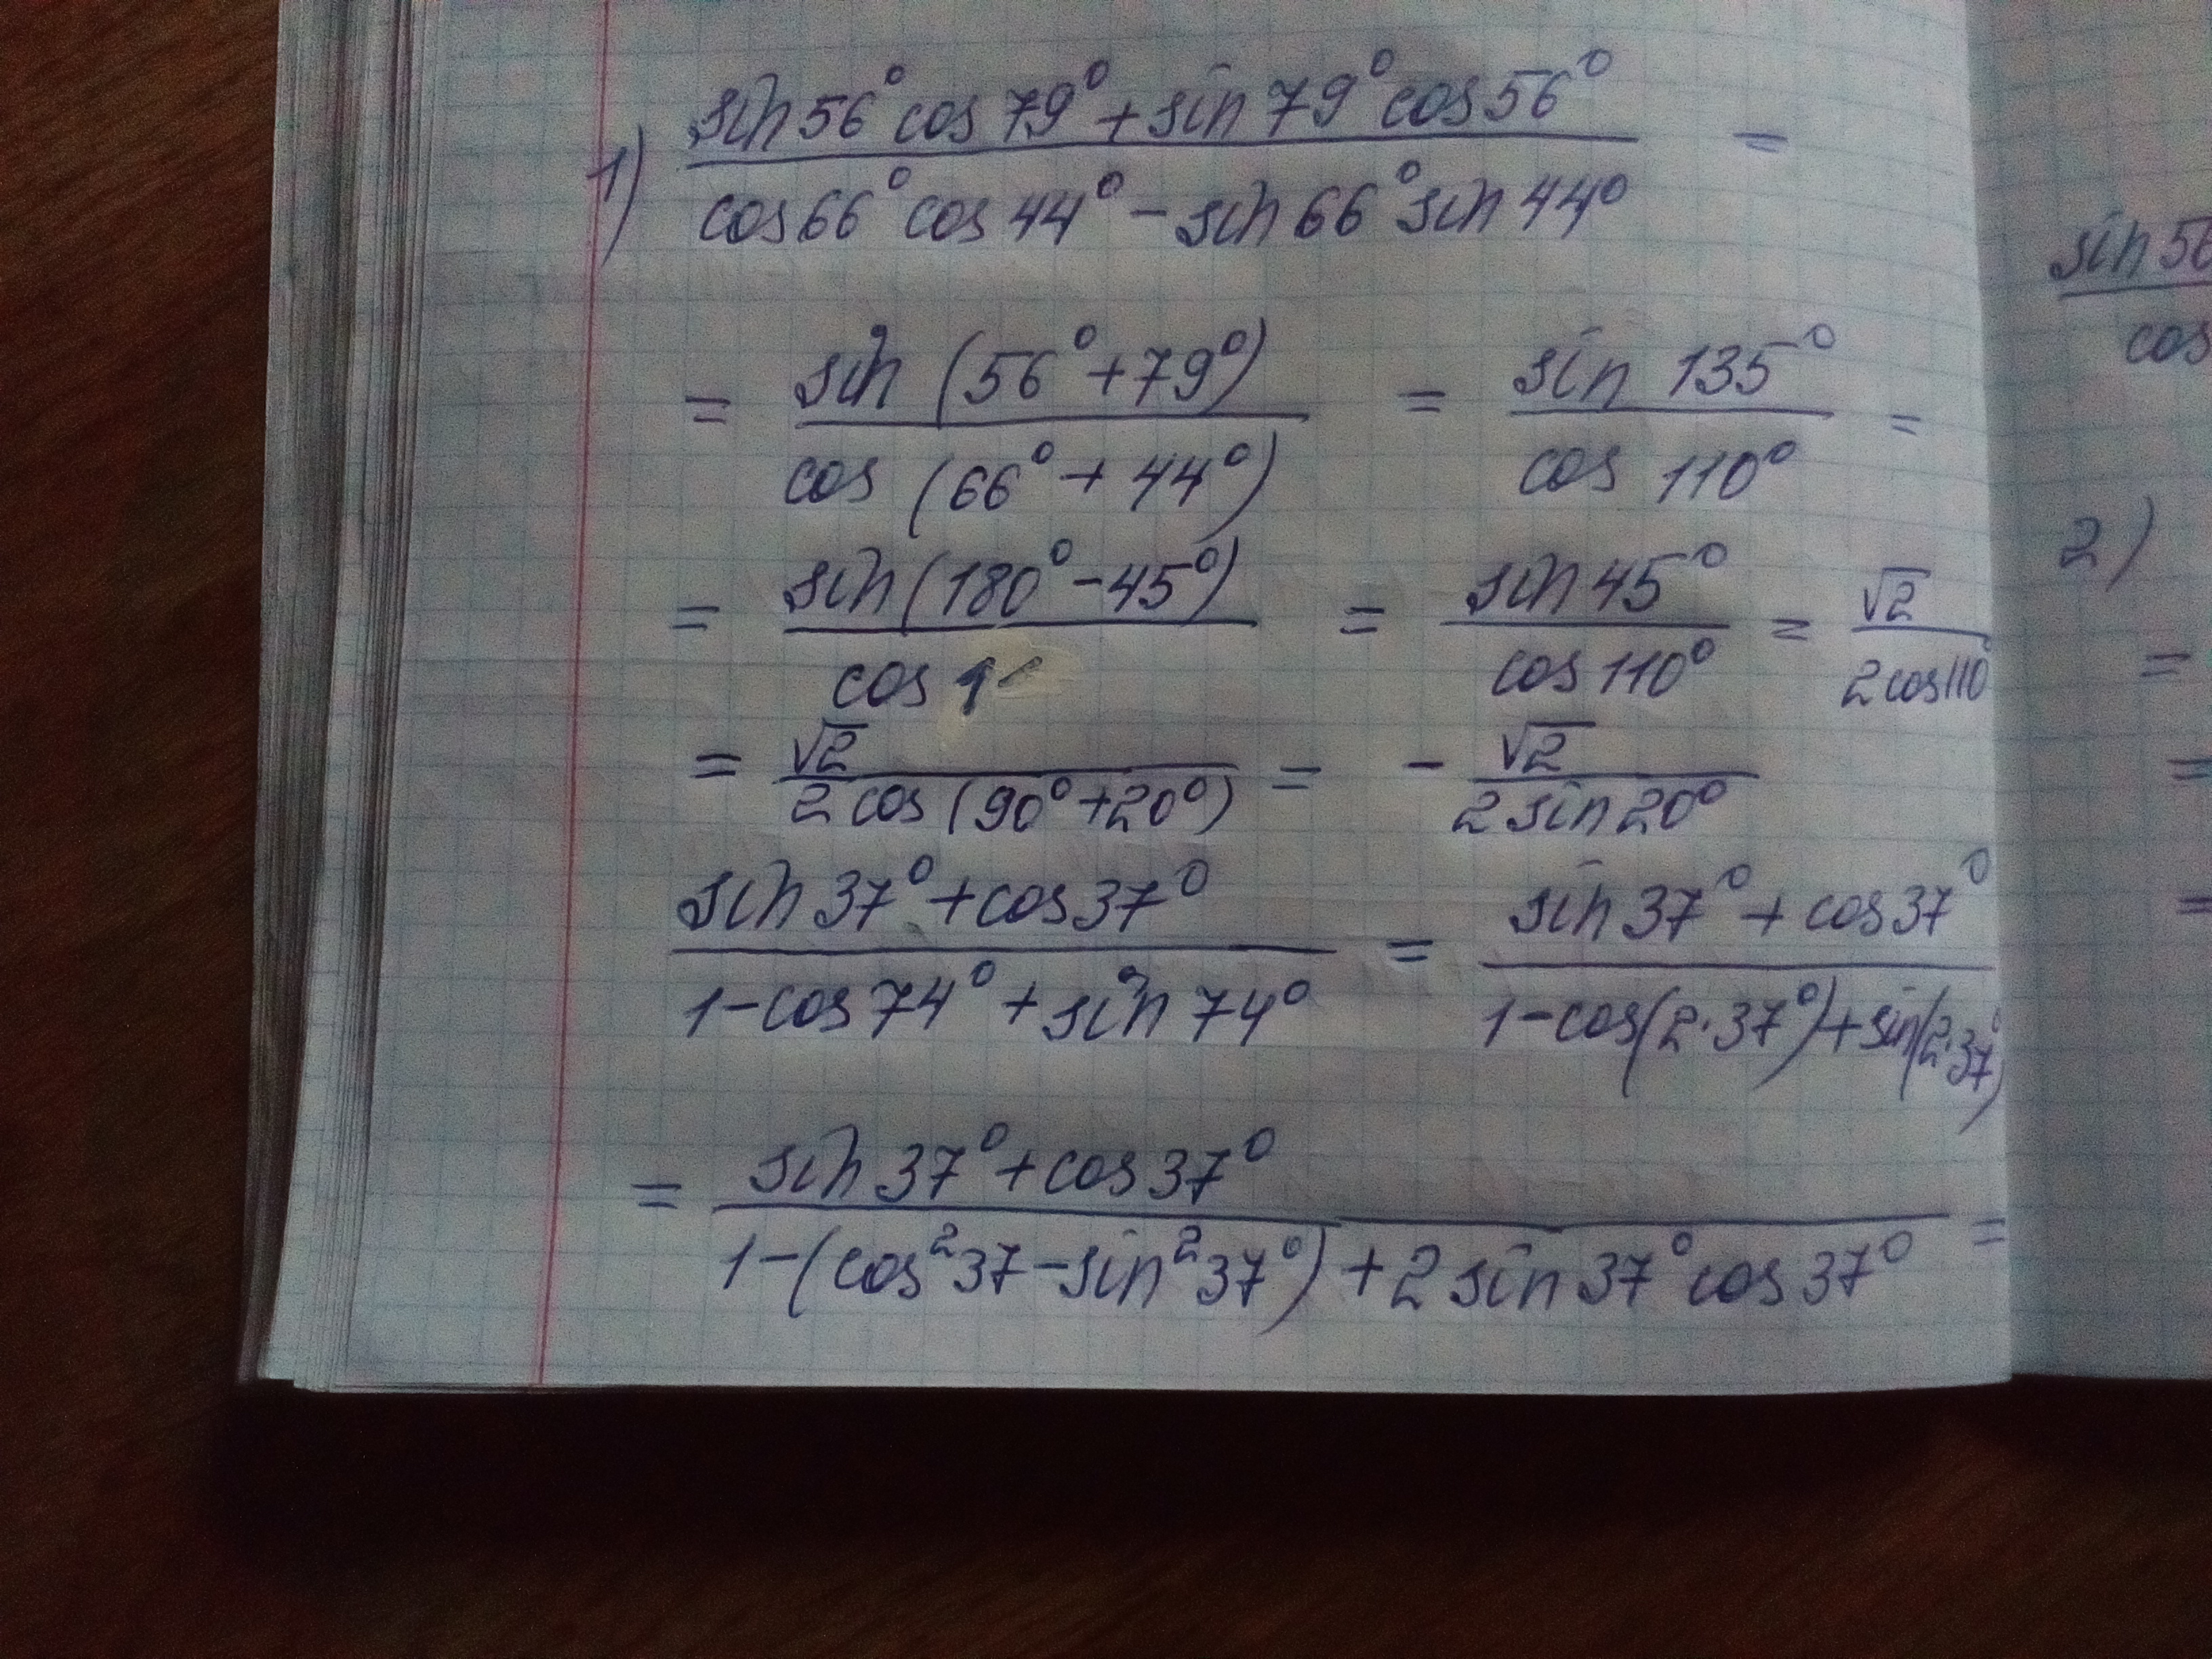 1) (sin 56° cos 79° + sin 79° cos 56°) / (cos 66° cos 44° - sin 66° sin 44°) =
= sin (56° + 79°) / cos (66° + 44°) = sin 135° / cos 110° =
= sin (180° - 45°) / cos 1 = sin 45° / cos 110° = √2 / 2 cos 110°
= √2 / 2 cos (90° + 20°) = - √2 / 2 sin 20°
(sin 37° + cos 37°) / (1 - cos 74° + sin 74°) = (sin 37° + cos 37°) / (1 - cos (2 · 37°) + sin (2 · 37°)
= (sin 37° + cos 37°) / (1 - (cos² 37 - sin² 37°) + 2 sin 37° cos 37°) =
sin 56
cos
2)
=
=
=